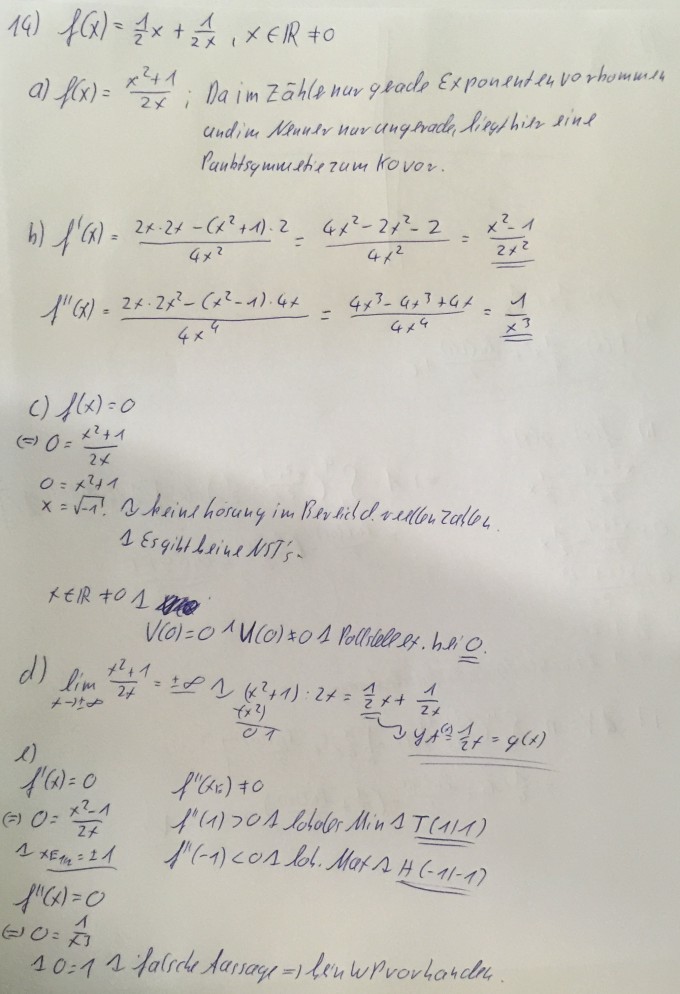 14) f(x) = 1/2 x + 1/2x , x ∈ ℝ ≠ 0
a) f(x) = x²+1/2x ; Da im Zähle nur gerade Exponenten vorkommen
und im Nenner nur ungerade, liegt hier eine
Punktsymmetrie zum KO vor.
b) f'(x) = 2x·2x − (x²+1)·2/4x² = 4x² − 2x² − 2/4x² = x² − 1/2x²
f''(x) = 2x·2x² − (x²−1)·4x/4x⁴ = 4x³ − 4x³ + 4x/4x⁴ = 1/x³
c) f(x) = 0
(=) 0 = x²+1/2x
0 = x²+1
x = √-1 ! keine Lösung im Bereich d. reellen Zahlen.
Es gibt keine NST's.
x ∈ ℝ ≠ 0
V(0) = 0 ^ U(0) ≠ 0 Pollstelle ex. bei 0.
d) lim x→±∞ x²+1/2x = ±∞ (x²+1) : 2x = 1/2 x + 1/2x
-(x²)
0 1
yA(x) = 1/2 x = g(x)
e)
f'(x) = 0 f''(xE) ≠ 0
(=) 0 = x²−1/2x f''(1) > 0 lokaler Min T(1|1)
xE1/2 = ±1 f''(-1) < 0 lok. Max H(-1|-1)
f''(x) = 0
(=) 0 = 1/x3
0 = 1 falsche Aussage => kein WP vorhanden.